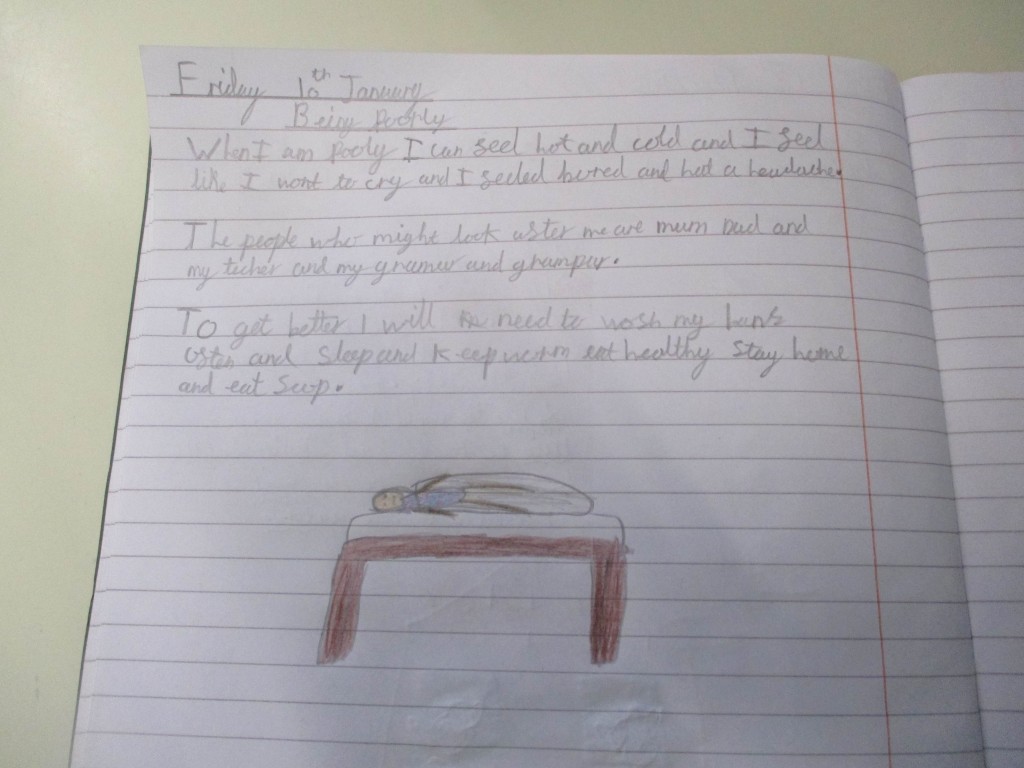 Friday 10th January
Being poorly
When I am pooly I can seel hot and cold and I seel
like I wont to cry and I seeled bored and hat a headache.
The people who might look aster me are mum Dad and
my techer and my gramar and grampar.
To get better I will need to wosh my hans
osten and sleep and keep worm eat healthy stay home
and eat soup.